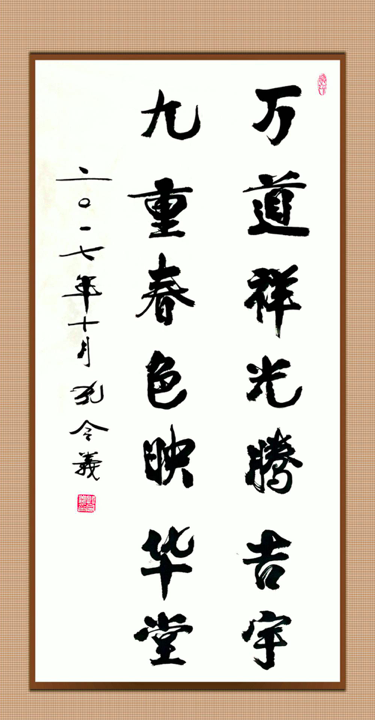 万道祥光腾吉宇
九重春色映华堂
二〇一七年十月孔令义